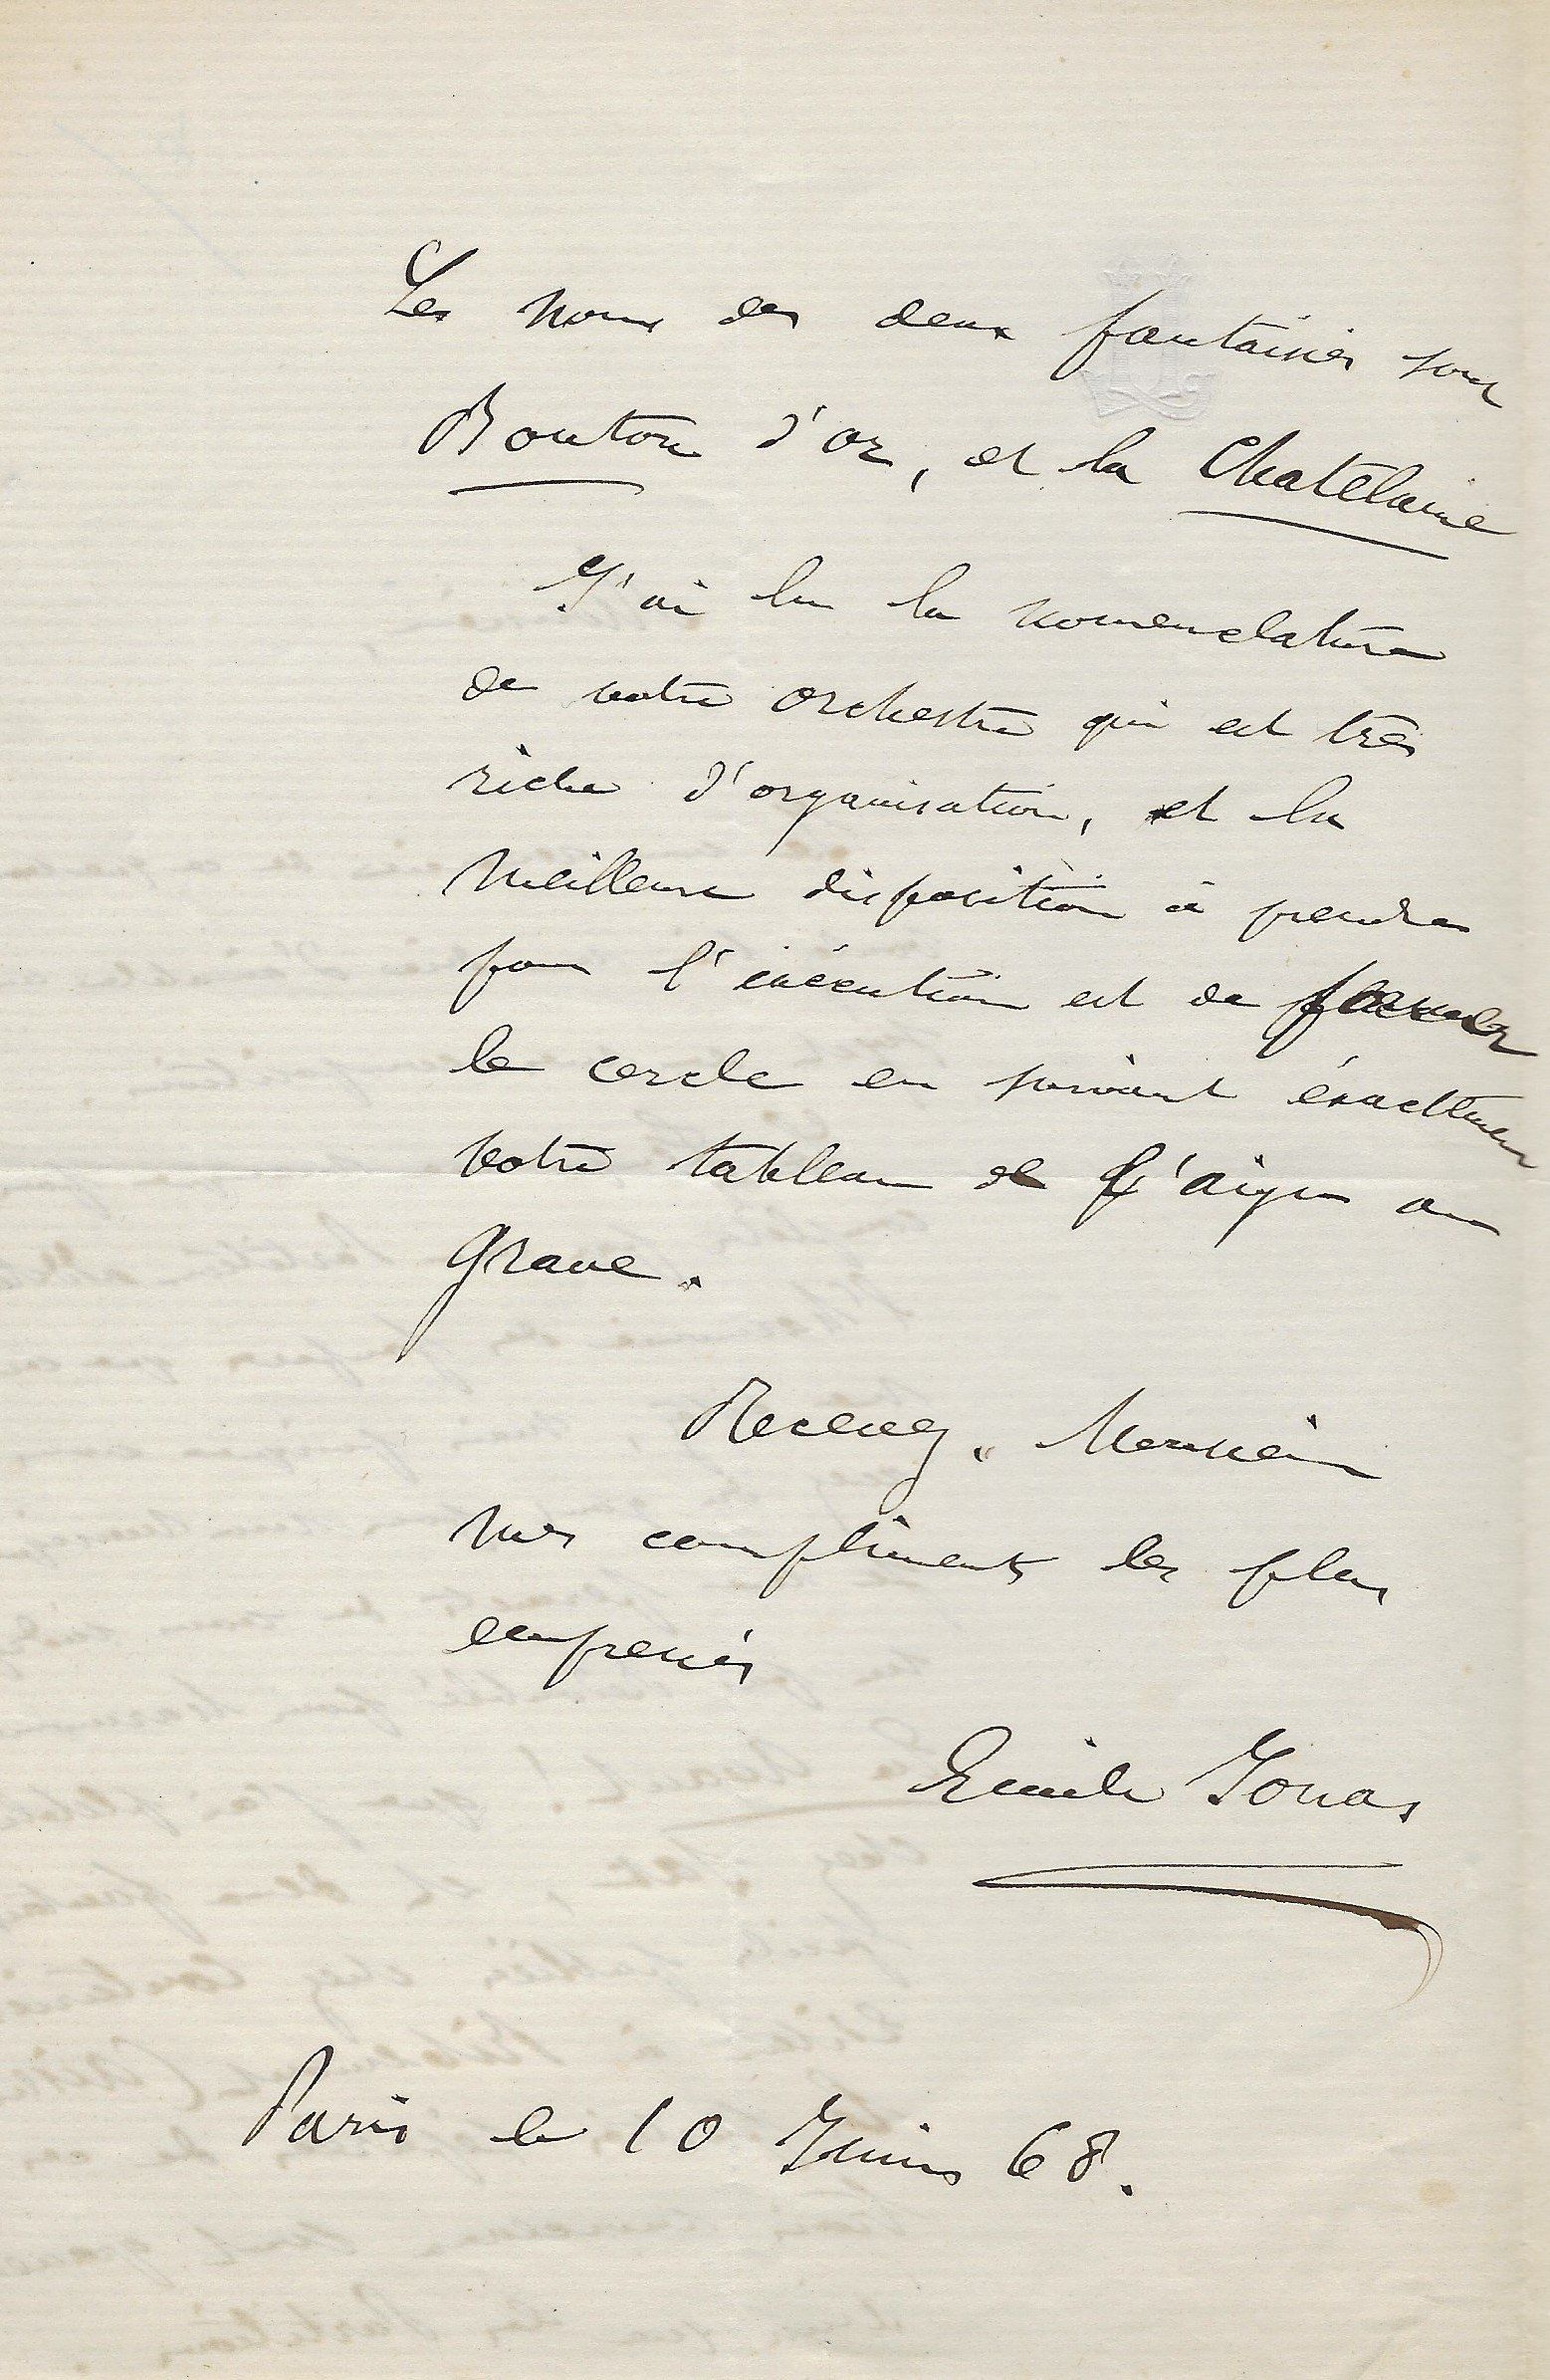 Les noms des deux fantaisies sont
Bouton d'or, et la Chatelaine
J'ai lu la nomenclature
de votre orchestre qui est très
riche d'organisation, et la
meilleure disposition à prendre
pour l'exécution est de former
le cercle en suivant éxactement
votre tableau de l'aigu au
grave.
Recevez, Monsieur
mes compliments les plus
empressés
Emile Jonas
Paris le 10 Juin 68.